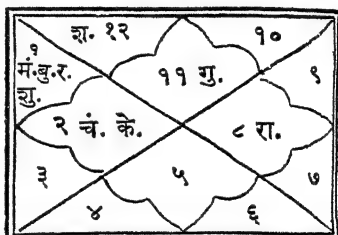 श. १२
१०
१
मं.बु.र.
शु.
११ गु.
९
२ चं. के.
८ रा.
३
५
७
४
६